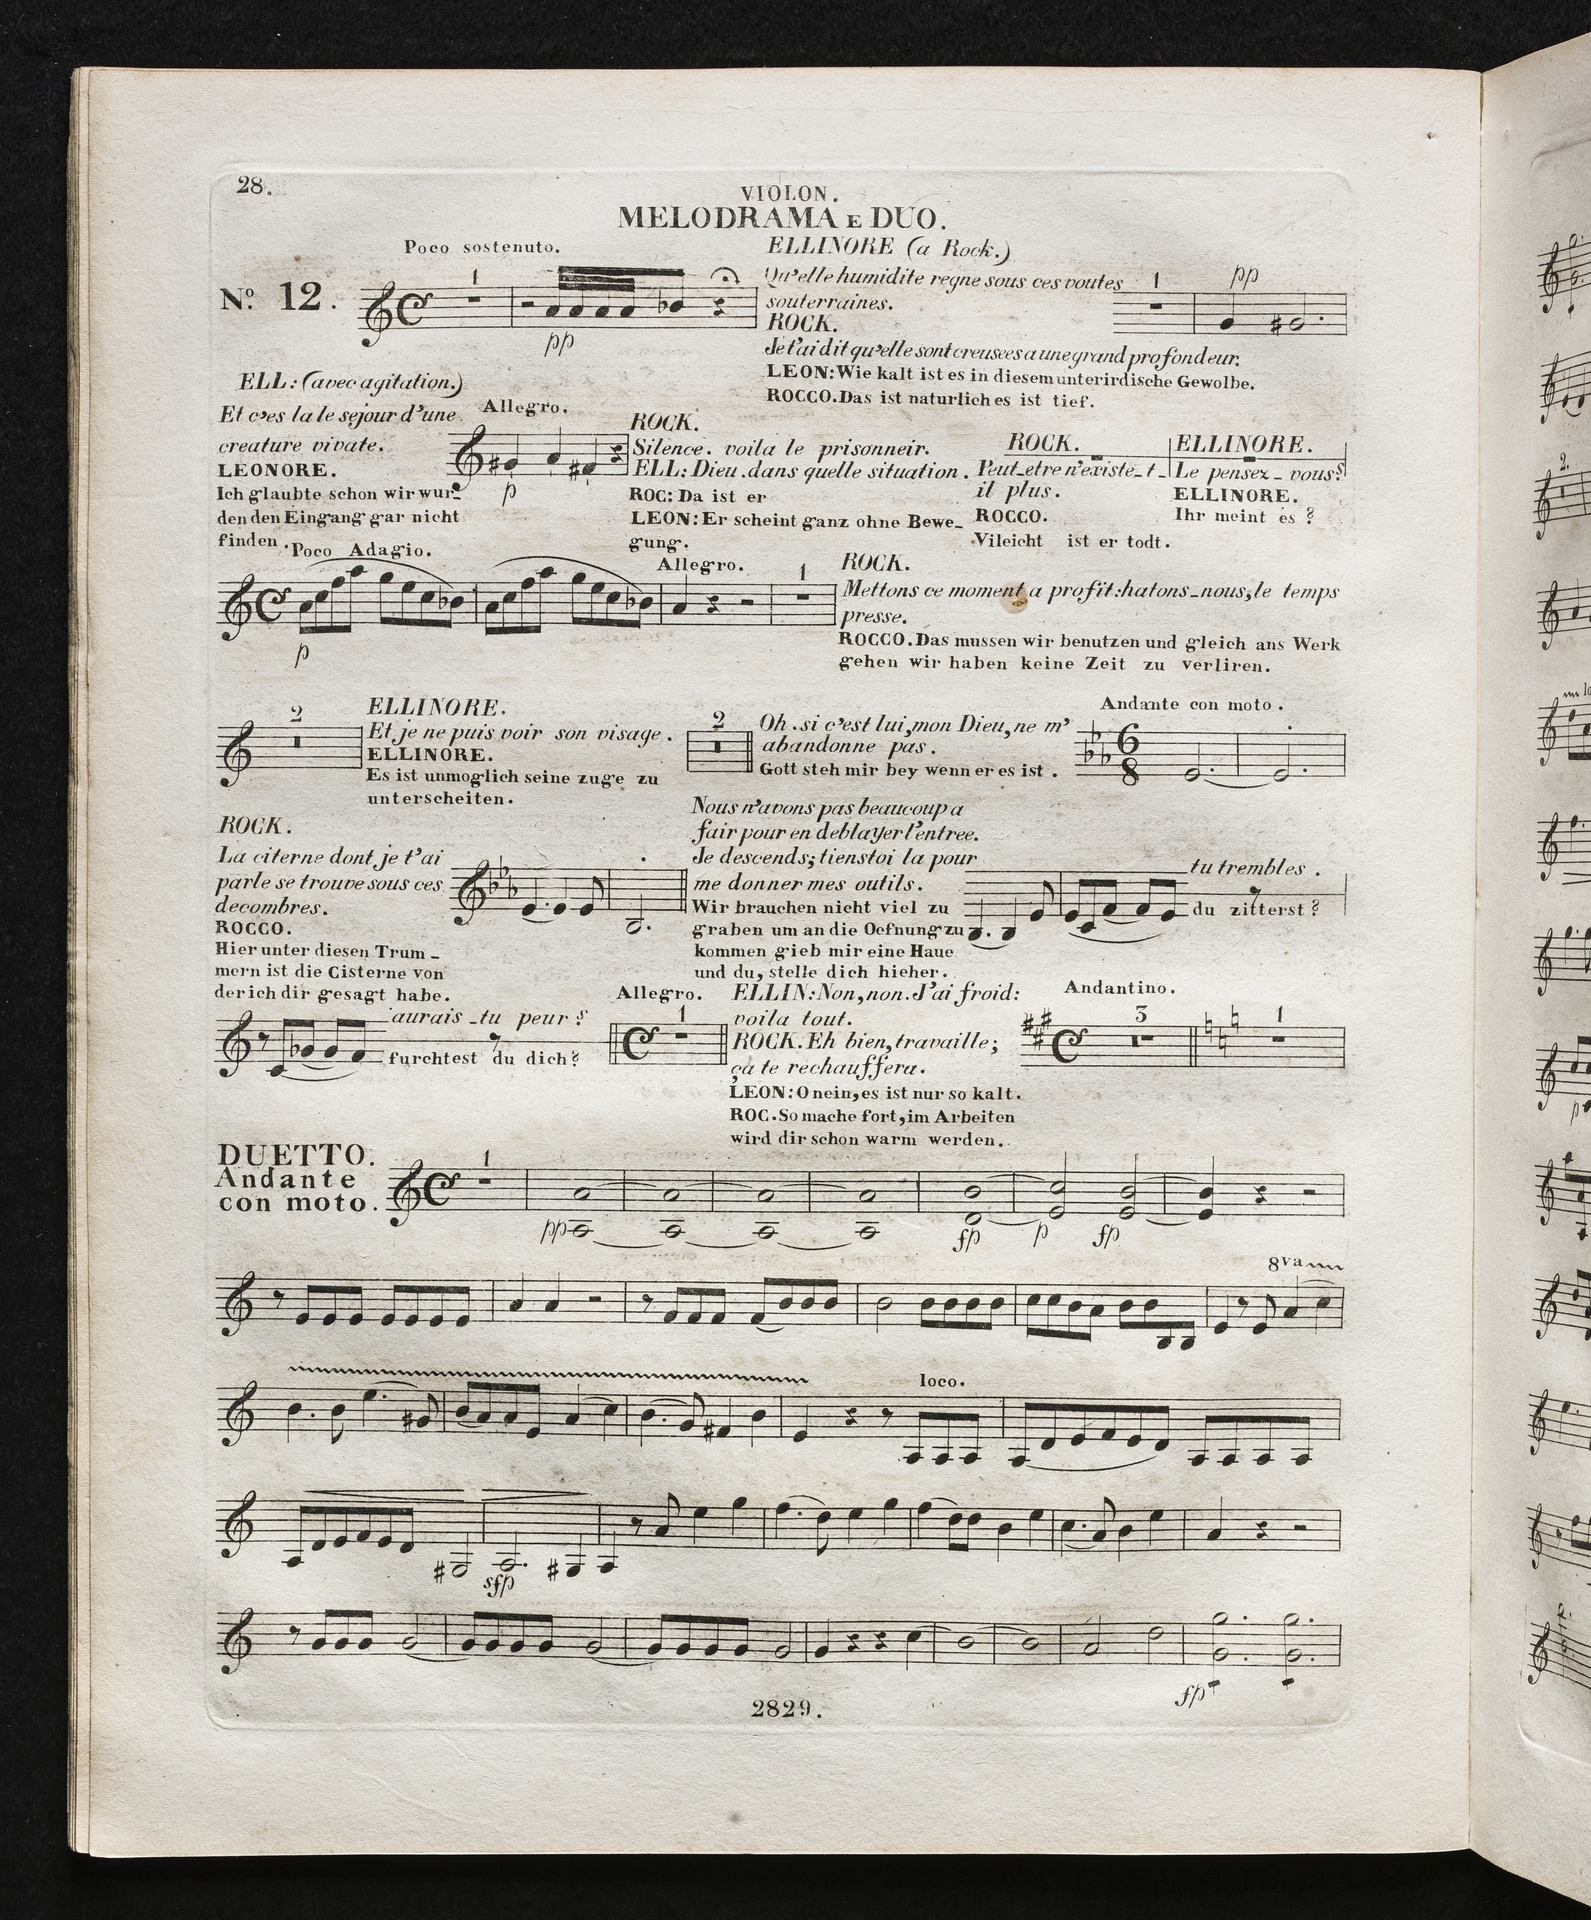 28.
VIOLON.
MELODRAMA E DUO.
Poco sostenuto.
ELLINORE (a Rock.)
No. 12.
1
pp
Qu'elle humidite regne sous ces voutes
souterraines.
1
pp
ROCK.
Je t'ai dit qu'elle sont creusees a une grand profondeur.
LEON: Wie kalt ist es in diesem unterirdische Gewolbe.
ROCCO. Das ist naturlich es ist tief.
ELL: (avec agitation.)
Et c'es la le sejour d'une
creature vivate.
LEONORE.
Ich glaubte schon wir wur-
den den Eingang gar nicht
finden.
Allegro.
p
ROCK.
Silence. voila le prisonneir.
ELL: Dieu. dans quelle situation.
ROC: Da ist er
LEON: Er scheint ganz ohne Bewe-
gung.
ROCK.
Peut-etre n'existe-t-
il plus.
ROCCO.
Vileicht ist er todt.
ELLINORE.
Le pensez-vous?
ELLINORE.
Ihr meint es?
Poco Adagio.
p
Allegro.
1
ROCK.
Mettons ce moment a profit: hatons-nous, le temps
presse.
ROCCO. Das mussen wir benutzen und gleich ans Werk
gehen wir haben keine Zeit zu verliren.
2
ELLINORE.
Et je ne puis voir son visage.
ELLINORE.
Es ist unmoglich seine zuge zu
unterscheiten.
2
Oh. si c'est lui, mon Dieu, ne m'
abandonne pas.
Gott steh mir bey wenn er es ist.
Andante con moto.
6
8
ROCK.
La citerne dont je t'ai
parle se trouve sous ces
decombres.
ROCCO.
Hier unter diesen Trum-
mern ist die Cisterne von
der ich dir gesagt habe.
Nous n'avons pas beaucoup a
fair pour en deblayer l'entree.
Je descends; tiens toi la pour
me donner mes outils.
Wir brauchen nicht viel zu
graben um an die Oefnung zu
kommen gieb mir eine Haue
und du, stelle dich hieher.
tu trembles.
du zitterst?
aurais-tu peur?
furchtest du dich?
Allegro.
1
ELLIN: Non, non. J'ai froid:
voila tout.
ROCK. Eh bien, travaille;
ça te rechauffera.
LEON: O nein, es ist nur so kalt.
ROC. So mache fort, im Arbeiten
wird dir schon warm werden.
Andantino.
3
1
DUETTO.
Andante
con moto.
1
pp
fp
p
fp
8va
loco.
sfp
fp
2829.